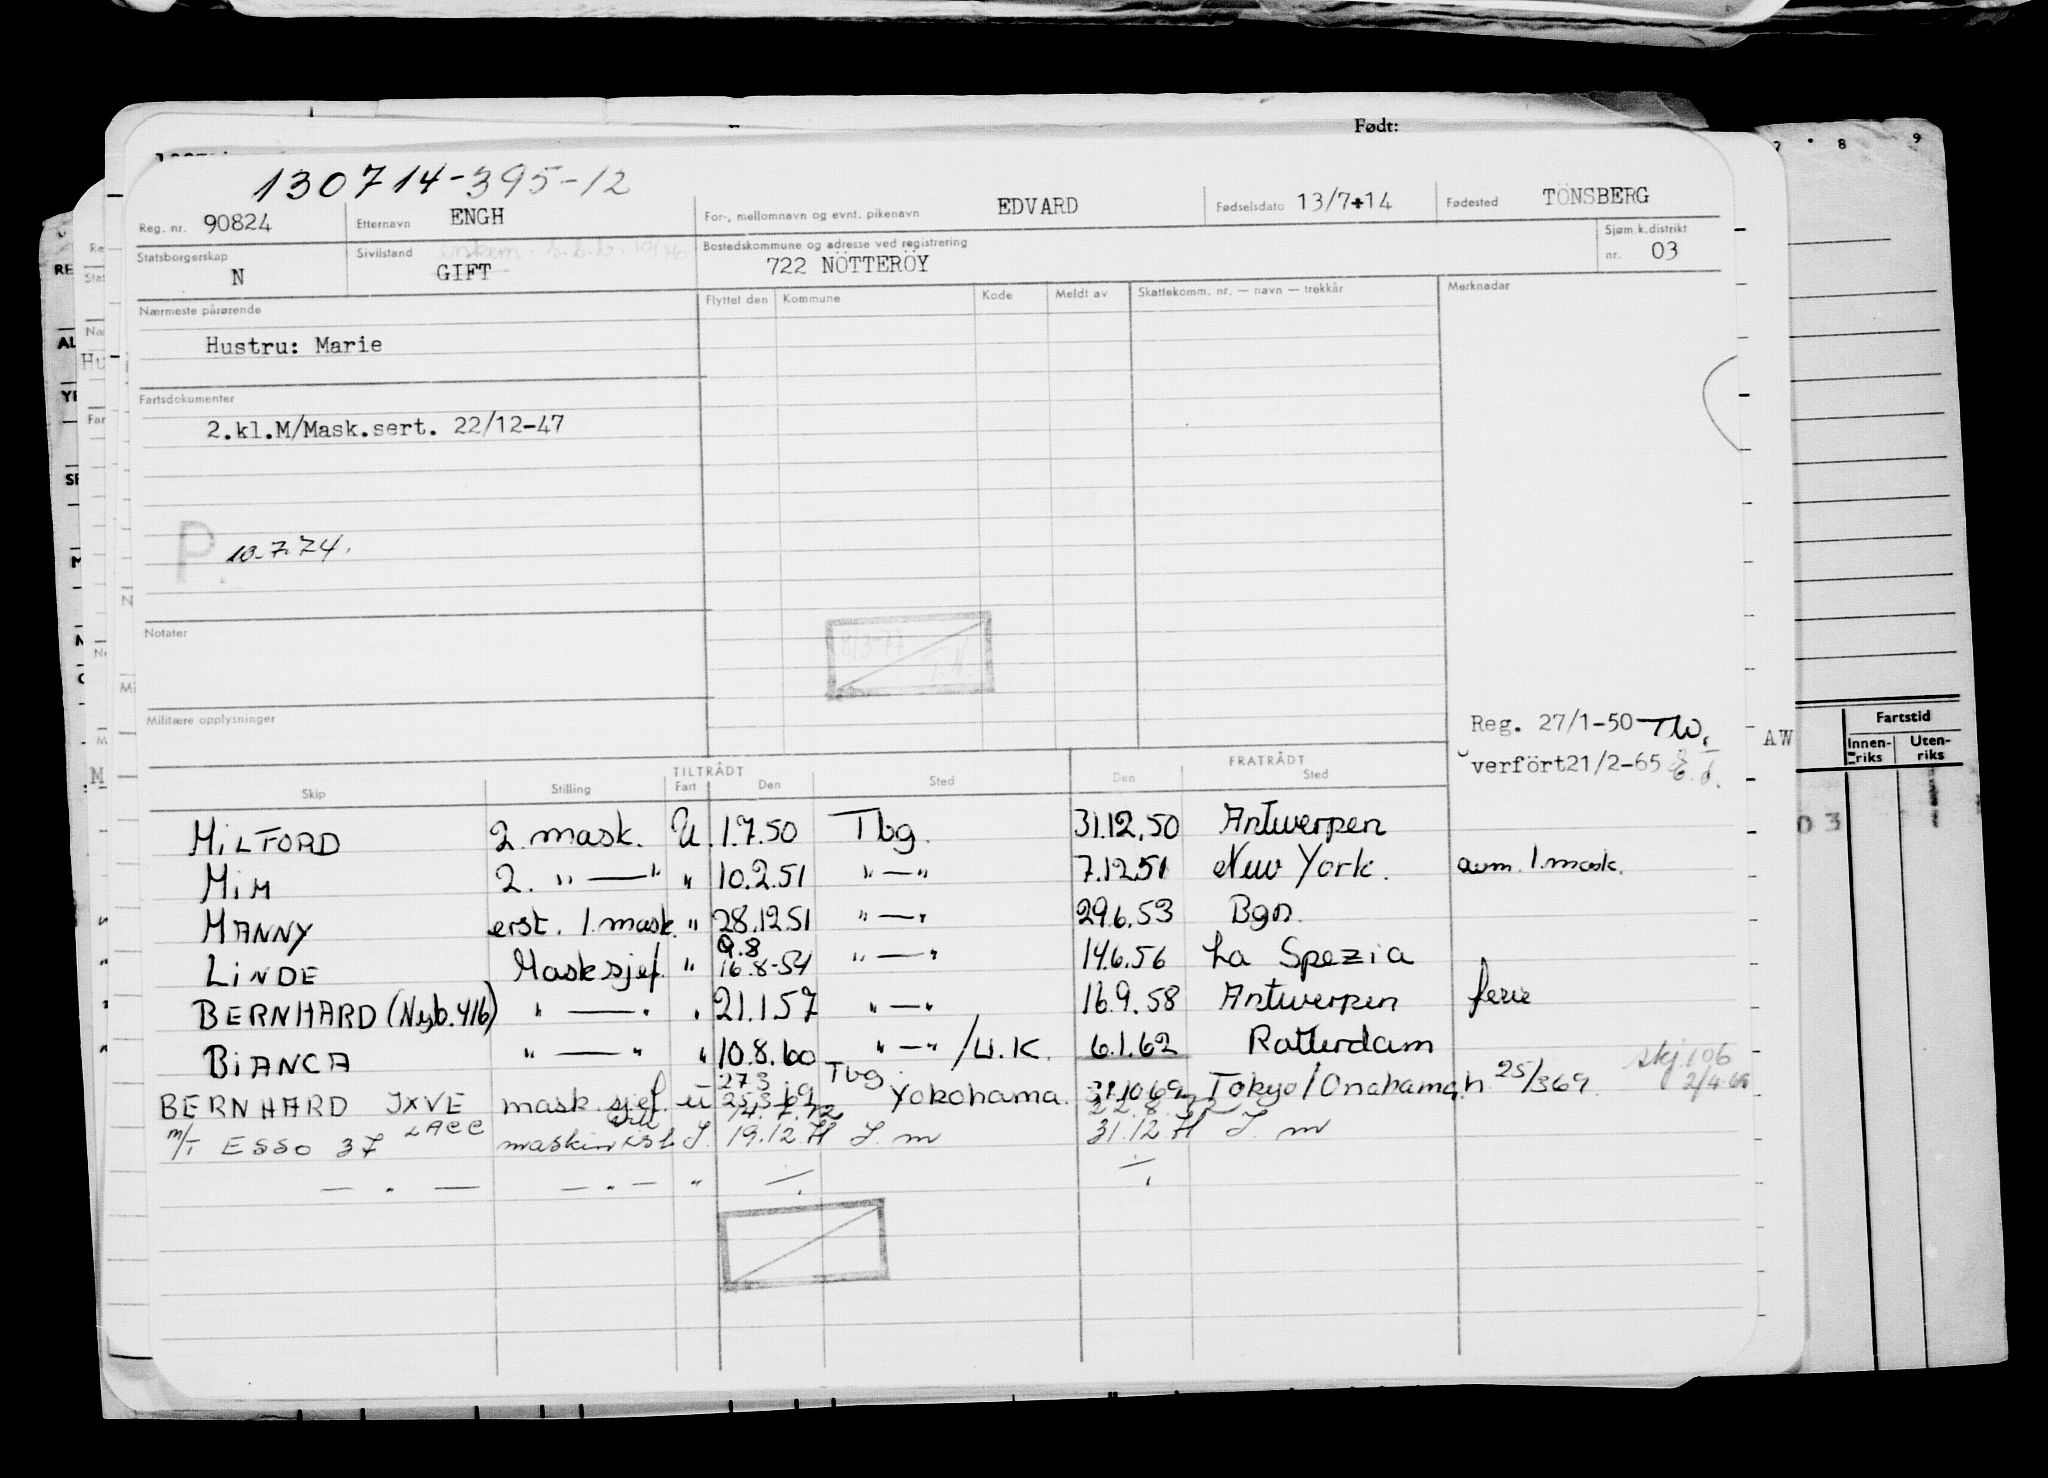 Født:
7 • 8 9
130714-395-12
Reg. nr. 90824 Etternavn ENGH For-, mellomnavn og evnt. pikenavn EDVARD Fødselsdato 13/7-14 Fødested TÖNSBERG
Statsborgerskap N Sivilstand GIFT Bostedskommune og adresse ved registrering 722 NÖTTERÖY Sjøm.k.distrikt nr. 03
Nærmeste pårørende Flyttet den Kommune Kode Meldt av Skattekomm. nr. — navn — trekkår Merknader
Hustru: Marie
Fartsdokumenter
2.kl.M/Mask.sert. 22/12-47
P 10.7.74.
Notater
8/3-77
Militære opplysninger
Reg. 27/1-50
verfört21/2-65
AW
Fartstid
Innenriks Utenriks
03
TILTRÅDT FRATRÅDT
Skip Stilling Fart Den Sted Den Sted
MILFORD 2. mask. U. 1.7.50 Tbg. 31.12.50 Antwerpen
MIM 2. " — " " 10.2.51 " — " 7.12.51 New York. avm. 1. mask.
MANNY erst. 1. mask. " 28.12.51 " — " 29.6.53 Bgn.
9.8
LINDE Masksjef. " 16.8-54 " — " 14.6.56 La Spezia
BERNHARD (Nyb. 416) " — " " 21.1.57 " — " 16.9.58 Antwerpen ferie
BIANCA " — " " 10.8.60 " — " /U.K. 6.1.62 Rotterdam
27.3 Tbg skj. 106
BERNHARD mask. sjef. u Yokohama. 31.10.69 Tokyo/Onahama 25/369. 2/4
m/T ESSO 37 19.12 31.12
— " — — " — "